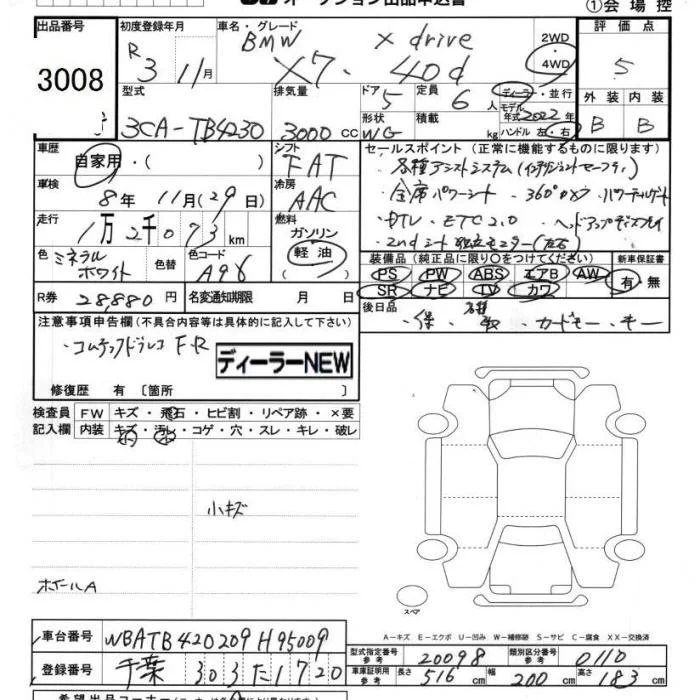 オークション出品申込書
①会場控
出品番号 3008
初度登録年月 R3 11月
車名・グレード BMW x drive X7・40d
2WD ・ 4WD
評価点 5
型式 3CA-TB4230
排気量 3000 cc
ドア 5
定員 6 人
形状 WG
積載 kg
ディーラー・並行
モデル年式 2022年
ハンドル 左・右
外装 内装
B B
車歴 自家用・( )
シフト FAT
車検 8年 11月(29日)
冷房 AAC
走行 1万2千073 km
燃料 ガソリン 軽油 ( )
色 ミネラルホワイト 色替
色コード A96
R券 28,880円
名変通知期限 月 日
セールスポイント(正常に機能するものに限ります)
・各種アシストシステム(インテリジェントセーフティ)
・全席パワーシート・360°カメラ・パワーテールゲート
・DTV・ETC2.0・ヘッドアップディスプレイ
・2ndシート独立モニター(左右)
装備品(純正品に限り○をつけてください)
PS PW ABS エアB AW
SR ナビ TV カワ
新車保証書
有・無
後日品
・保・取・カードキー・キー
注意事項申告欄(不具合内容等は具体的に記入して下さい)
・コムテックドラレコ F・R
ディーラーNEW
修復歴 有 [箇所 ]
検査員記入欄
FW キズ・飛石・ヒビ割・リペア跡・×要
内装 キズ・汚れ・コゲ・穴・スレ・キレ・破レ
小キズ
ホイールA
スペア
A－キズ E－エクボ U－凹み W－補修跡 S－サビ C－腐食 XX－交換済
車台番号 WBATB420209H95009
登録番号 千葉 303 た 1720
型式指定番号 参考 20098
類別区分番号 参考 0110
車庫証明用 参考 長さ 516 cm 幅 200 cm 高さ 183 cm
希望出品コーナー